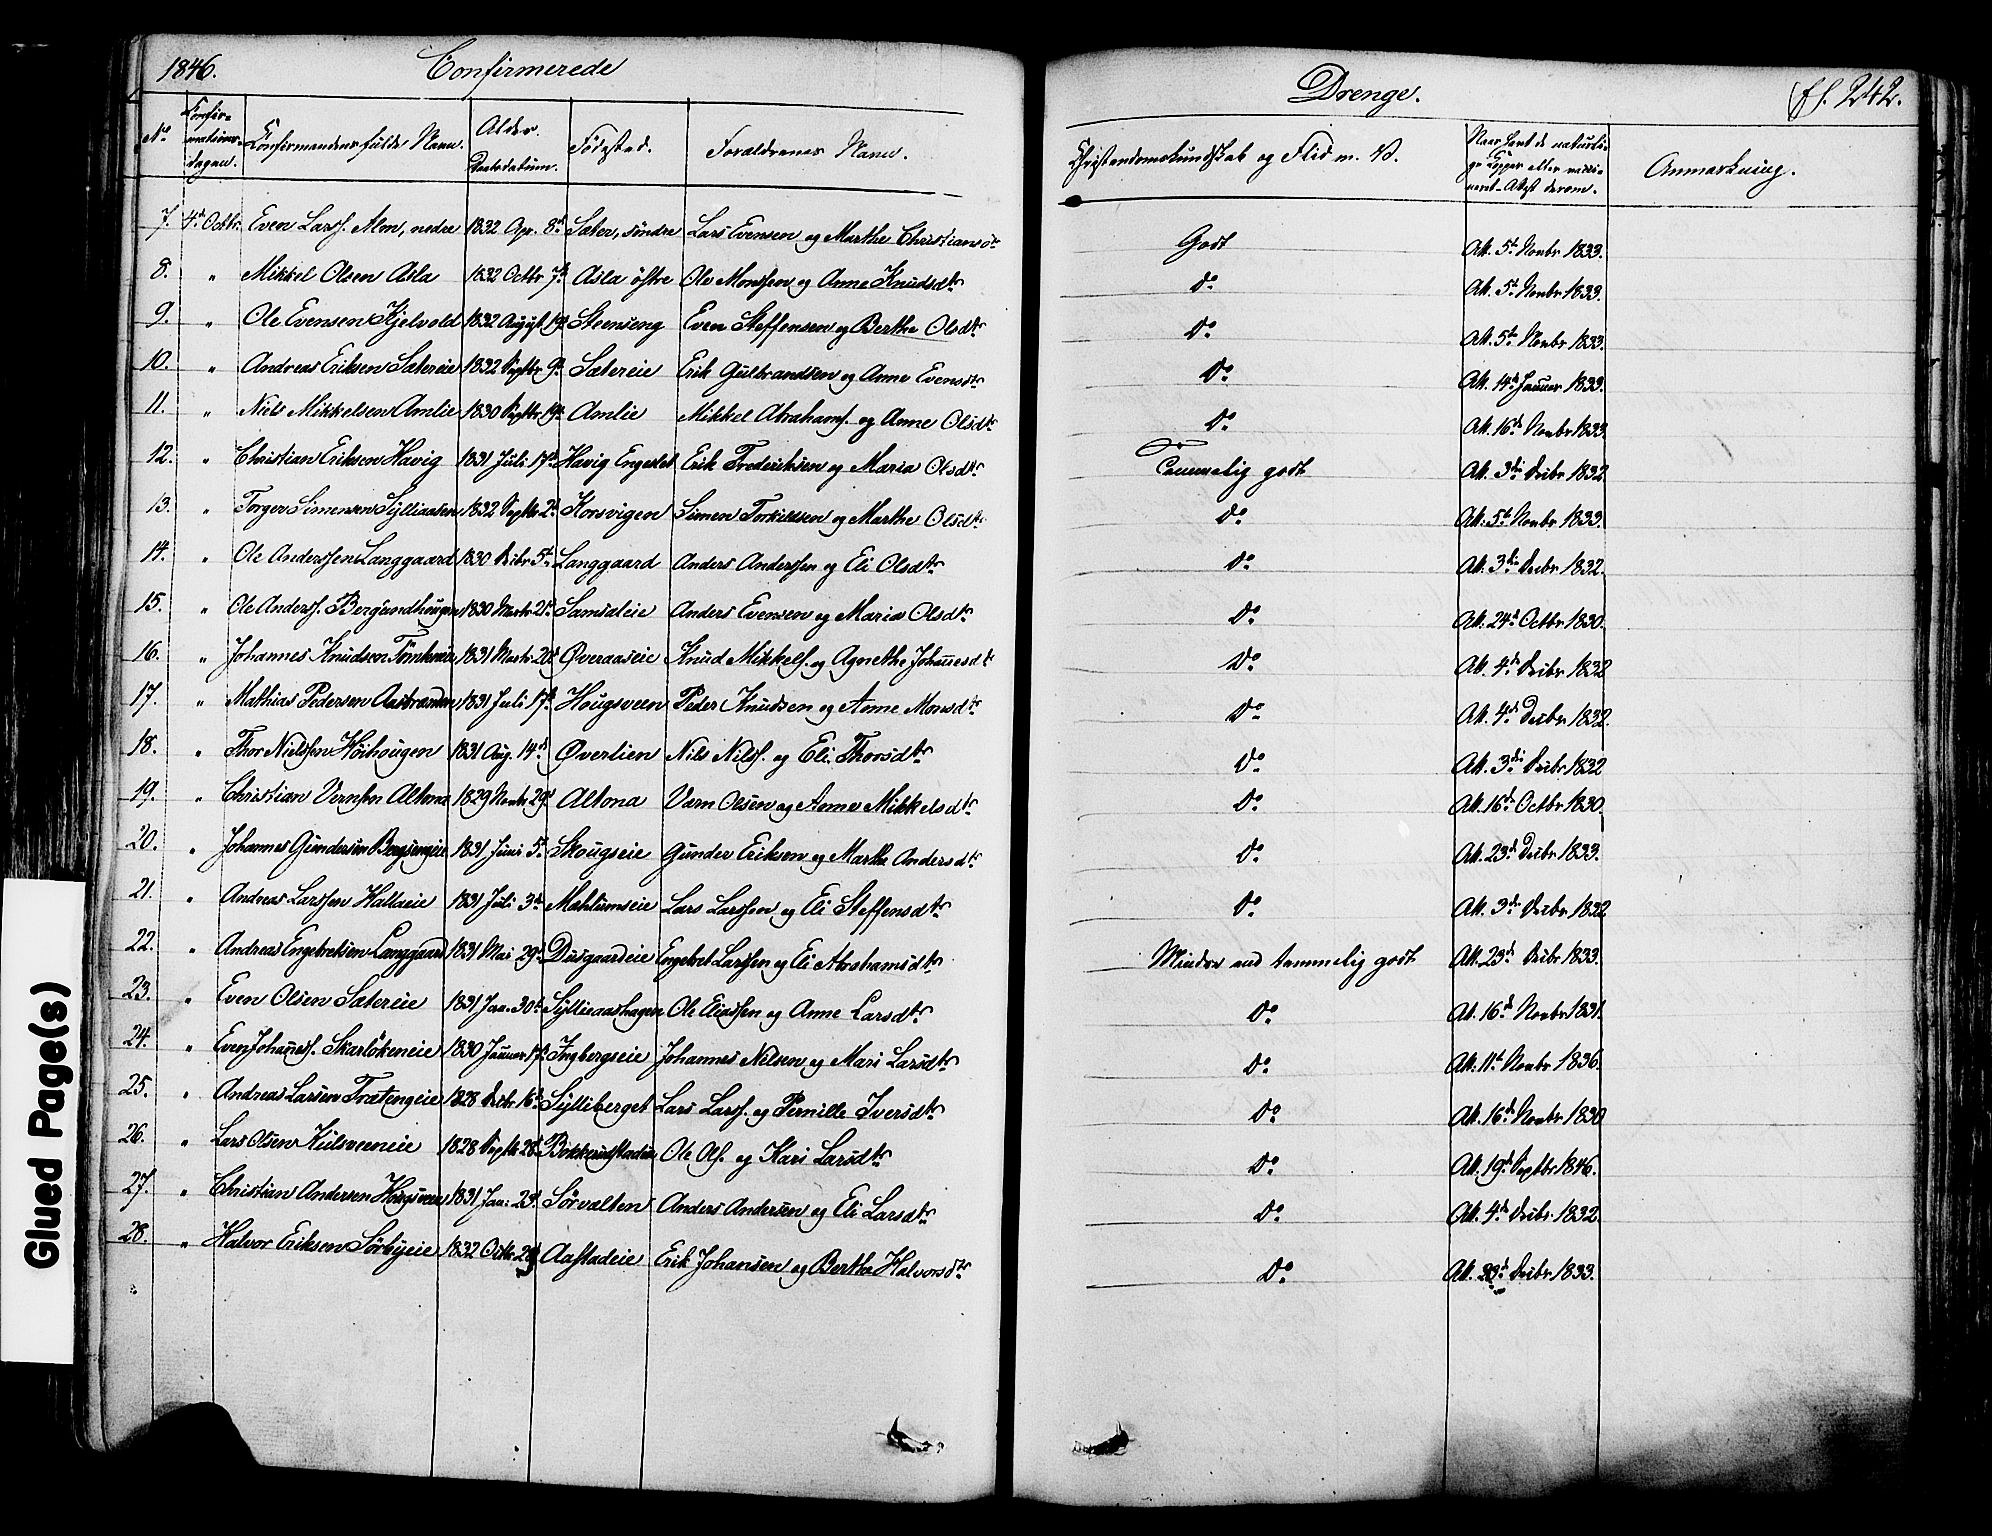 1846. Confirmerede
Drenge. fl. 242.
No Confirmationsdagen. Confirmandens fulde Navn. Alder. Daabsdatum. Fødested. Forældrenes Navn. Christendomskundskab og Flid m. V. Naar havt de naturlige Kopper eller vaccineret - Attest derom. Anmærkning.
7. 4de Octbr. Even Larss. Moen, nedre 1832 Apr. 8de Sæter, søndre Lars Evensen og Marthe Christiansdtr Godt Att. 5te Novbr 1833.
8. " Mikkel Olsen Asla 1832 Octbr 7de Asla østre Ole Monssen og Anne Knudsdtr Do Att. 5te Novbr 1833.
9. " Ole Evensen Kjelvold 1832 August 19de Steenseng Even Steffensen og Berthe Olsdtr Do Att. 5te Novbr 1833.
10. " Andreas Eriksen Sætereie 1832 Septbr 9de Sætereie Erik Gulbrandsen og Anne Evensdtr Do Att. 14de Januar 1833.
11. " Niels Mikkelsen Amlie 1830 Septbr 19de Amlie Mikkel Abrahams. og Anne Olsdtr Do Att. 16de Novbr 1833.
12. " Christian Eriksen Havig 1831 Juli 17de Havig Engeslet Erik Frederiksen og Maria Olsdtr Temmelig godt Att. 3die Decbr 1832.
13. " Torger Simensen Sylliaasen 1832 Septbr 2de Korsvigen Simen Torkildsen og Marthe Olsdtr Do Att. 5te Novbr 1833.
14. " Ole Anderssen Langgaard 1830 Decbr 5te Langgaard Anders Anderssen og Eli Olsdtr Do Att. 3die Decbr 1832.
15. " Ole Anderss. Berglundhougen 1830 Marts 21de Samsaleie Anders Evensen og Maria Olsdtr Do Att. 24de Octbr 1830.
16. " Johannes Knudsen 1831 Marts 20de Øveraaseie Knud Mikkels. og Agnethe Johannesdtr Do Att. 4de Decbr 1832
17. " Mathias Pedersen Aasbrænden 1831 Juli 17de Hougsveen Peder Knudsen og Anne Monsdtr Do Att. 4de Decbr 1832.
18. " Thor Nielssen Høihougen 1831 Aug. 14de Øverlien Nils Nilss. og Eli Thorsdtr Do Att. 3die Decbr 1832
19. " Christian Vernsen Altona 1829 Novbr 29de AltonaVærn Olsen og Anne Mikkelsdtr Do Att. 16de Octbr 1830.
20. " Johannes Gundersen Bergsengeie 1831 Juni 5te Skougseie Gunder Eriksen og Marthe Andersdtr Do Att. 23de Decbr 1833.
21. " Andreas Larssen Hallaeie 1831 Juli 3die Mæhlumseie Lars Larssen og Eli Steffensdtr Do Att. 3die Decbr 1832
22. " Andreas Engebretsen Langgaard 1831 Mai 29de Dusgaardeie Engebret Larssen og Eli Abrahamsdtr Mindre end temmelig godt Att. 23de Decbr 1833.
23. " Even Olsen Sætereie 1831 Jan. 30te Sylliaashagen Ole Eliassen og Anne Larsdtr Do At. 16de Novbr 1831.
24. " Even Johanness. Skarløkeneie 1830 Januar 17de Ingbergseie Johannes Nielsen og Mari Larsdtr Do Att. 11te Novbr 1836.
25. " Andreas Larsen Trætengeie 1828 Decbr 16de Sylliberget Lars Larss. og Pernille Iversdtr Do Att. 16de Novbr 1830
26. " Lars Olsen Kulsveeneie 1828 Septbr 28de Ole Ols. og Kari Larsdtr Do Att. 19de Septbr 1846.
27. " Christian Andersen Hougsveen 1831 Jan: 23de Sørvalten Anders Andersen og Eli Larsdtr Do Att. 4de Decbr 1832.
28. " Halvor Eriksen Sørbyeie 1832 Octbr 28de Aastadeie Erik Johansen og Berthe Halvorsdtr Do Att. 23de Decbr 1833.
Glued Page(s)